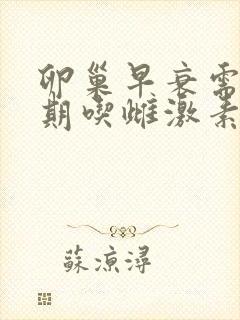 卵巢早衰需
期喫雌激素
蘇涼潯